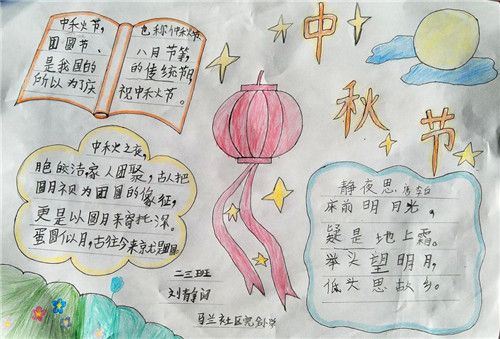 中秋节
中秋节，
团圆节、
是我国的
所以为了庆
也称仲秋节
八月节等，
的传统节日
祝中秋节。
中秋之夜，
皎洁，家人团聚，古人把
圆月视为团圆的像征，
更是以圆月来寄托深。
圆似月，古往今来
静夜思 李白
床前明月光，
疑是地上霜。
举头望明月，
低头思故乡。
二三班
刘静
社区完全小学